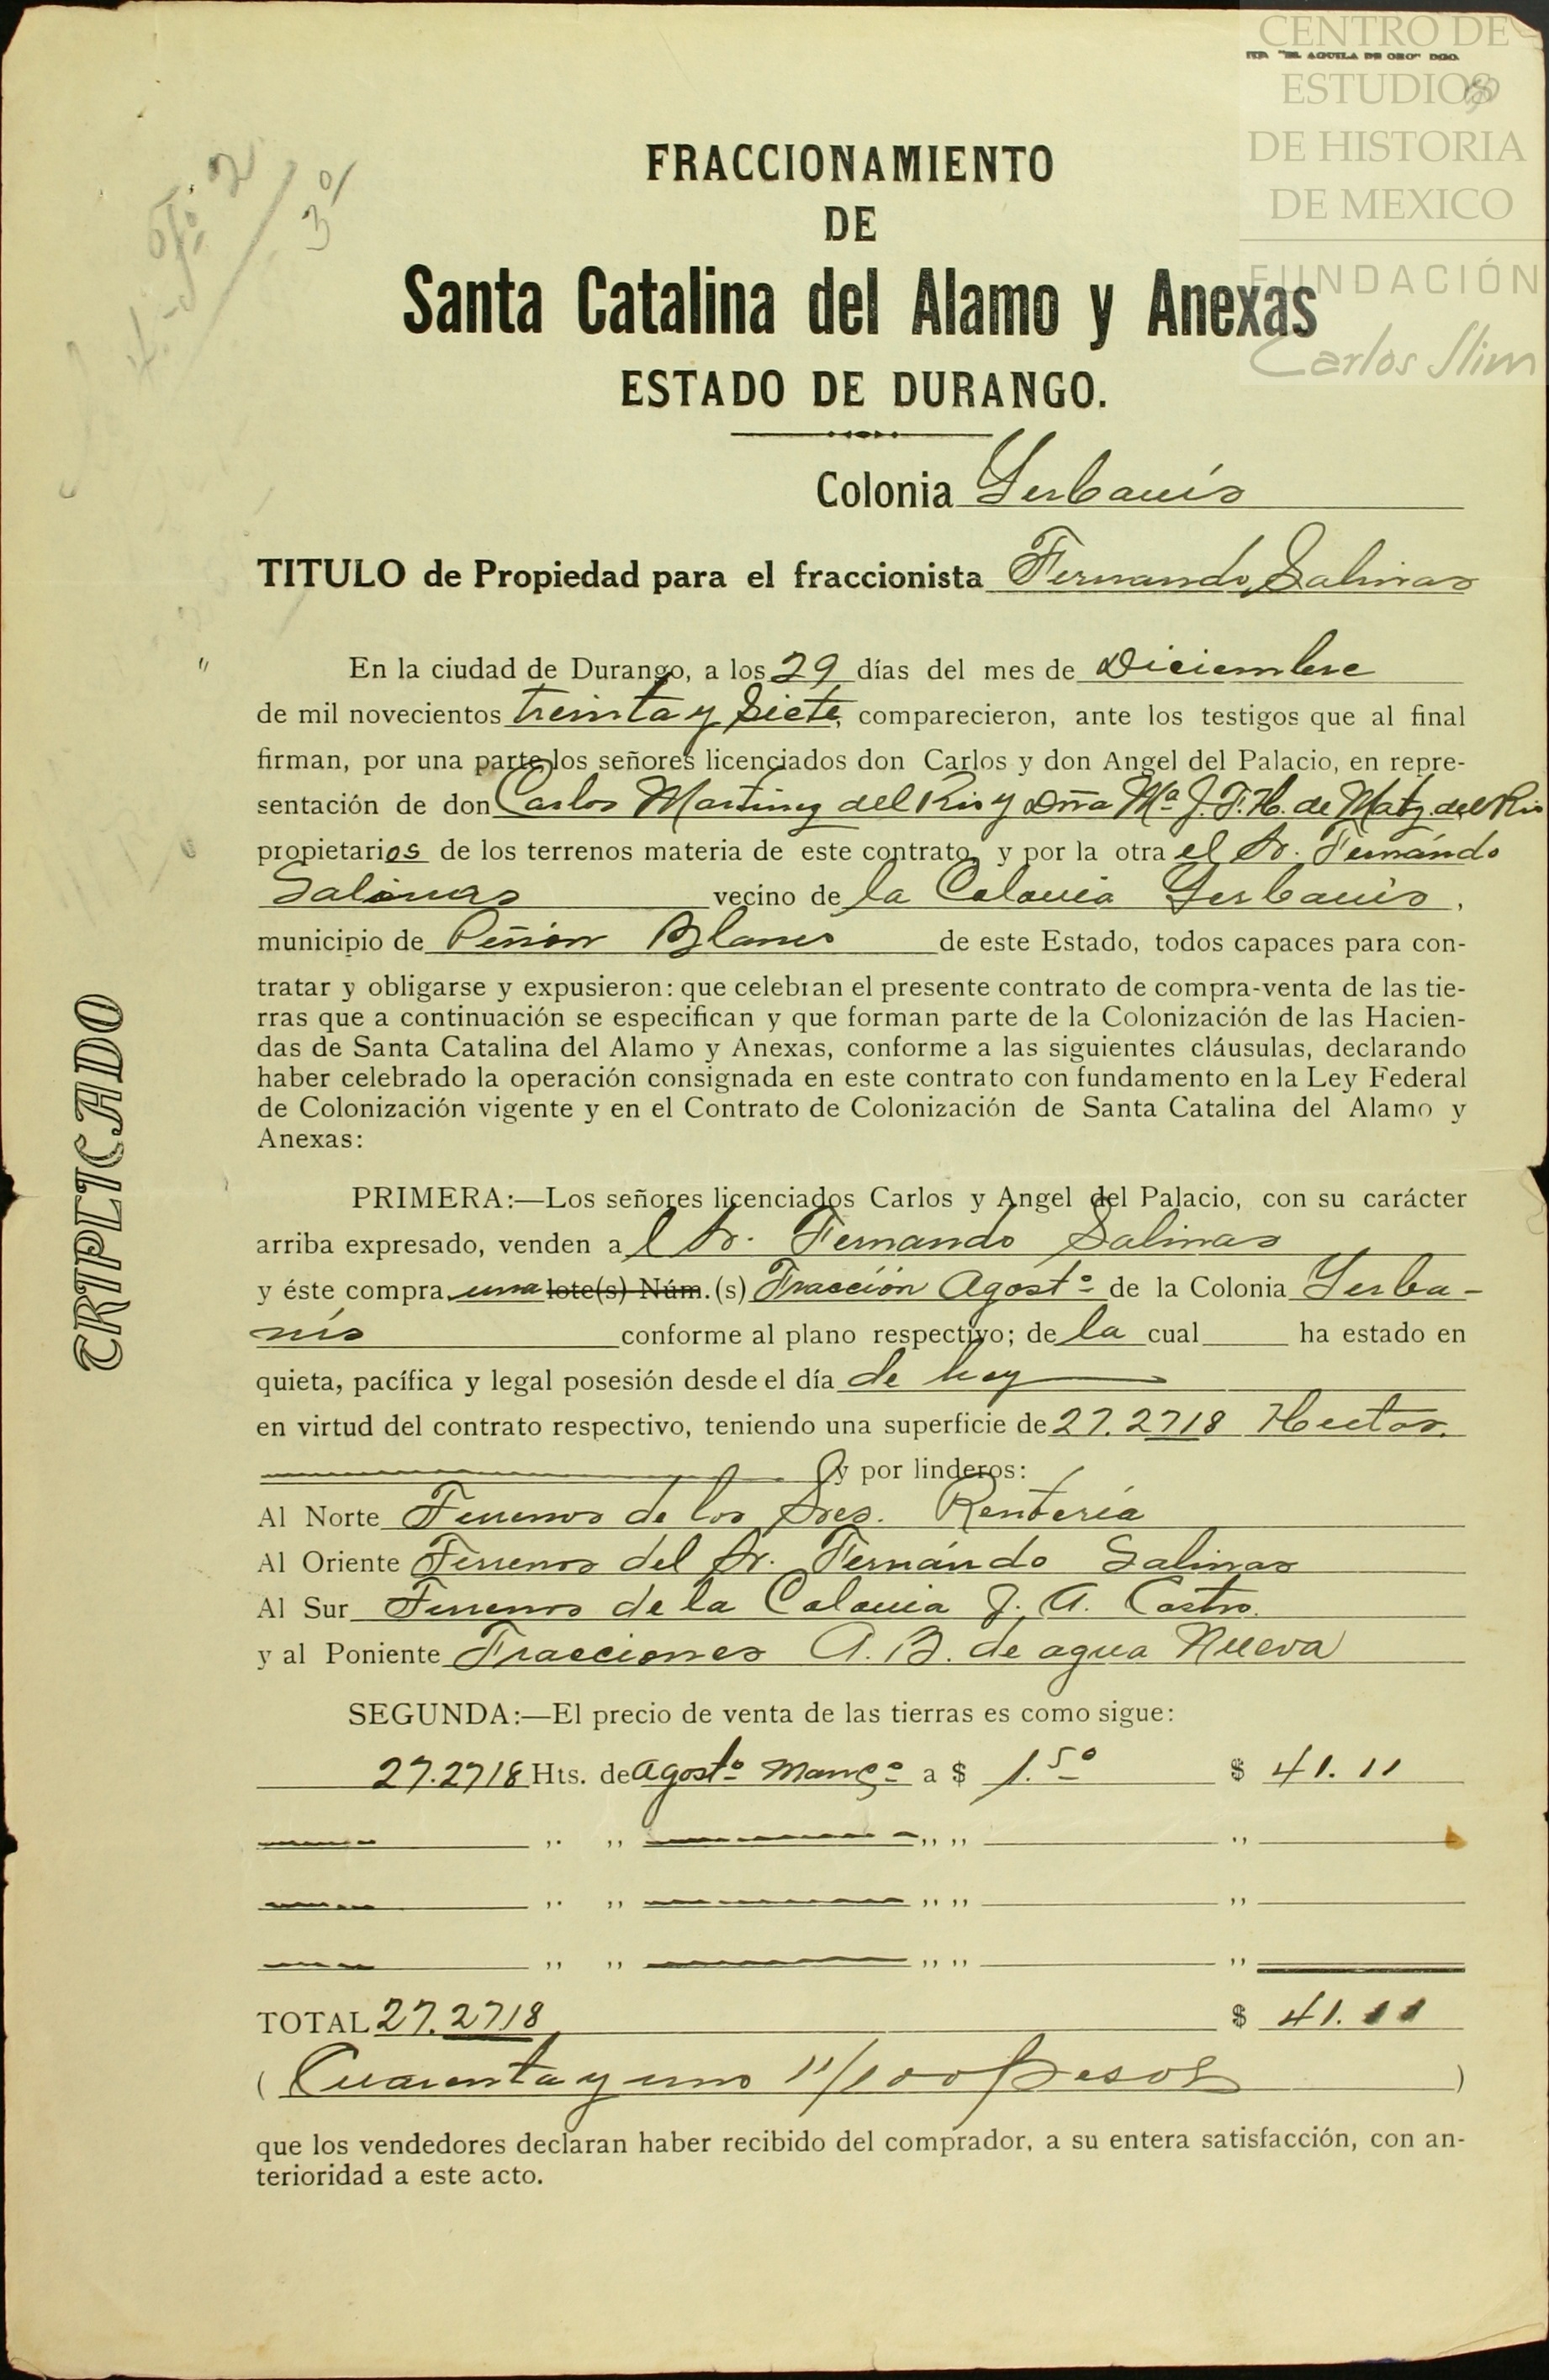 CENTRO DE
ESTUDIOS
DE HISTORIA
DE MEXICO
FUNDACIÓN
Carlos Slim
IMP. "EL AGUILA DE ORO" DGO.
3º
FRACCIONAMIENTO
DE
Santa Catalina del Alamo y Anexas
ESTADO DE DURANGO.
Colonia Yerbanís
TITULO de Propiedad para el fraccionista Fernando Salinas
En la ciudad de Durango, a los 29 días del mes de Diciembre
de mil novecientos treinta y siete, comparecieron, ante los testigos que al final
firman, por una parte los señores licenciados don Carlos y don Angel del Palacio, en repre-
sentación de don Carlos Martinez del Rio y Dña Mª J. F. H. de Matz. del Rio
propietarios de los terrenos materia de este contrato, y por la otra el Sr. Fernándo
Salinas vecino de la Colonia Yerbanis,
municipio de Peñón Blanco de este Estado, todos capaces para con-
tratar y obligarse y expusieron: que celebran el presente contrato de compra-venta de las tie-
rras que a continuación se especifican y que forman parte de la Colonización de las Hacien-
das de Santa Catalina del Alamo y Anexas, conforme a las siguientes cláusulas, declarando
haber celebrado la operación consignada en este contrato con fundamento en la Ley Federal
de Colonización vigente y en el Contrato de Colonización de Santa Catalina del Alamo y
Anexas:
TRIPLICADO
PRIMERA:—Los señores licenciados Carlos y Angel del Palacio, con su carácter
arriba expresado, venden al Sr. Fernando Salinas
y éste compra una lote(s) Núm.(s) Fracción Agostº de la Colonia Yerba-
nís conforme al plano respectivo; de la cual ha estado en
quieta, pacífica y legal posesión desde el día de hoy
en virtud del contrato respectivo, teniendo una superficie de 27.2718 Hectas.
y por linderos:
Al Norte Terrenos de los Sres. Rentería
Al Oriente Terrenos del Sr. Fernándo Salinas
Al Sur Terrenos de la Colonia J. A. Castro.
y al Poniente Fracciones A. B. de agua Nueva
SEGUNDA:—El precio de venta de las tierras es como sigue:
27.2718 Hts. de agostº a $ 1.50 $ 41.11
,, ,, ,, ,, ,,
,, ,, ,, ,, ,,
,, ,, ,, ,, ,,
TOTAL 27.2718 $ 41.11
( Cuarenta y uno 11/100 pesos )
que los vendedores declaran haber recibido del comprador, a su entera satisfacción, con an-
terioridad a este acto.